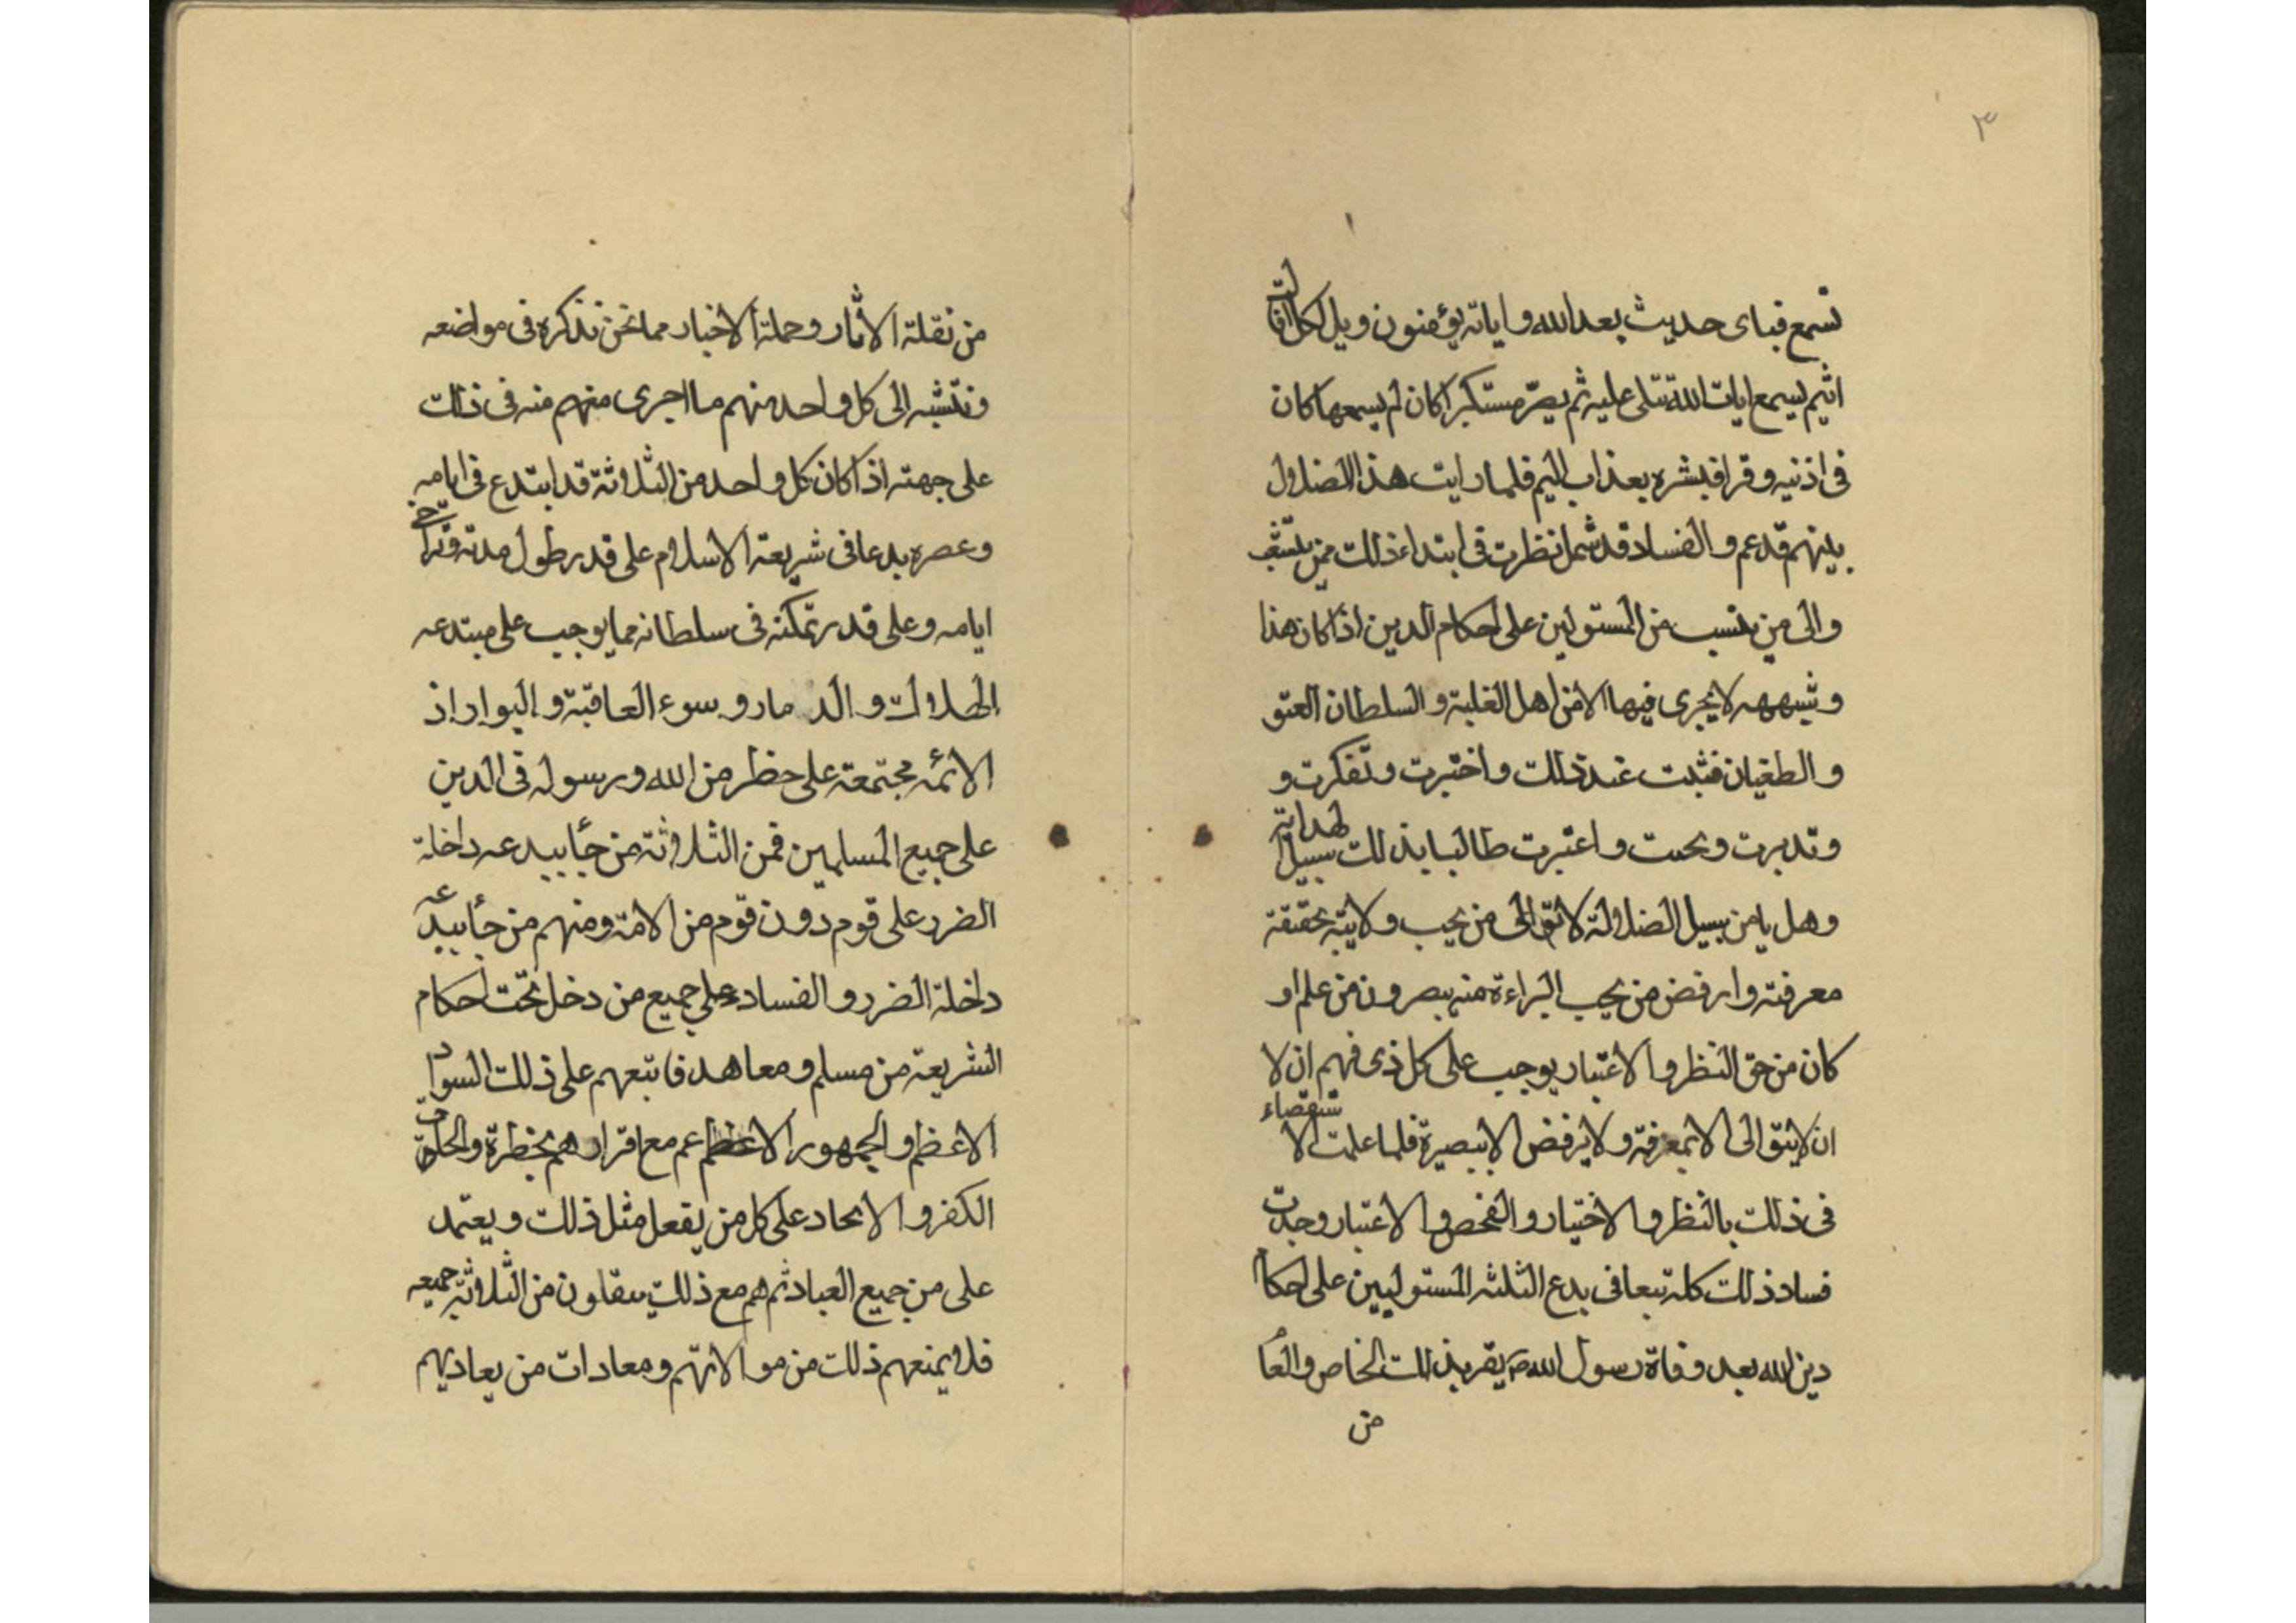 ٣
تسمع فباى حديث بعد الله واياته يؤمنون ويل لكل افاك
اثيم يسمع ايات الله تتلى عليه ثم يصرّ مستكبرا كان لم يسمعها كان
فى اذنيه وقرا فبشره بعذاب اليم فلما رايت هذا الضلال
بينهم قد عم والفساد قد شمل نظرت فى ابتداء ذلك ممن
والى من ينسب من المستولين على احكام الدين اذا كان هذا
وشبهه لا يجرى فيها الا من اهل الغلبة والسلطان العتو
والطغيان فثبت عند ذلك واختبرت وتفكرت و
وتدبرت وبحثت واعتبرت طالبا بذلك سبيل الهداية
وهل يا من سبيل الضلالة لا تق الى من يجب ولايته بحقيقة
معرفته وارفض من يجب البراءة منه بصرون من علم او
كان من حق النظر والاعتبار يوجب على كل ذى فهم ان لا
ان لا يثق الى الا بمعرفة ولا يرفض الا ببصيرة فلما علمت الاستقصاء
فى ذلك بالنظر والاختيار والفحص والاعتبار وجدت
فساد ذلك كله تبعا فى بدع الثلثه المستوليين على احكام
دين الله بعد وفاة رسول الله ص يقر بذلك الخاص والعام
من
من نقلة الاثار وحملة الاخبار مما نحن نذكره فى مواضعه
وننسبه الى كل واحد منهم ما اجرى منهم منه فى ذلك
على جهته اذا كان كل واحد من الثلاثة قد ابتدع فى ايامه
وعصره بدعا فى شريعة الاسلام على قدر طول مدته وتراخى
ايامه وعلى قدر تمكنه فى سلطانه مما يوجب على مبتدعه
الهلاك والدمار وسوء العاقبة والبوار اذ
الائمه مجتمعة على حظر من الله ورسوله فى الدين
على جميع المسلمين فمن الثلاثة من جأ ببدعه داخلة
الضرر على قوم دون قوم من الامة ومنهم من جأ ببدعه
داخلة الضرر والفساد على جميع من دخل تحت احكام
الشريعة من مسلم ومعاهد فاتبعهم على ذلك السواد
الاعظم والجمهور الاعظم عم مع اقرارهم بحظرة
الكفر والالحاد على كل من يفعل مثل ذلك ويعتمد
على من جميع العباد ثم هم مع ذلك من الثلاثة جميعه
فلا يمنعهم ذلك من موالاتهم ومعادات من يعاديهم